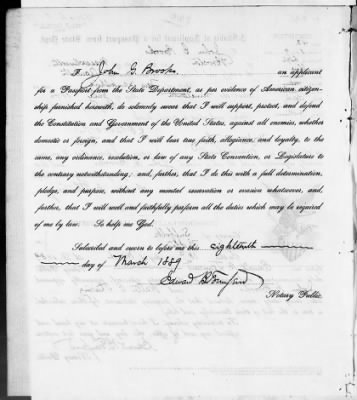 I, John G. Brooks, an applicant
for a Passport from the State Department, as per evidence of American citizen-
ship furnished herewith, do solemnly swear that I will support, protect, and defend
the Constitution and Government of the United States, against all enemies, whether
domestic or foreign, and that I will bear true faith, allegiance, and loyalty, to the
same, any ordinance, resolution, or law of any State Convention, or Legislature to
the contrary notwithstanding; and, further, that I do this with a full determination,
pledge, and purpose, without any mental reservation or evasion whatsoever, and,
further, that I will well and faithfully perform all the duties which may be required
of me by law. So help me God.
Subscribed and sworn to before me this eighteenth
day of March 1889
Edward
Notary Public.